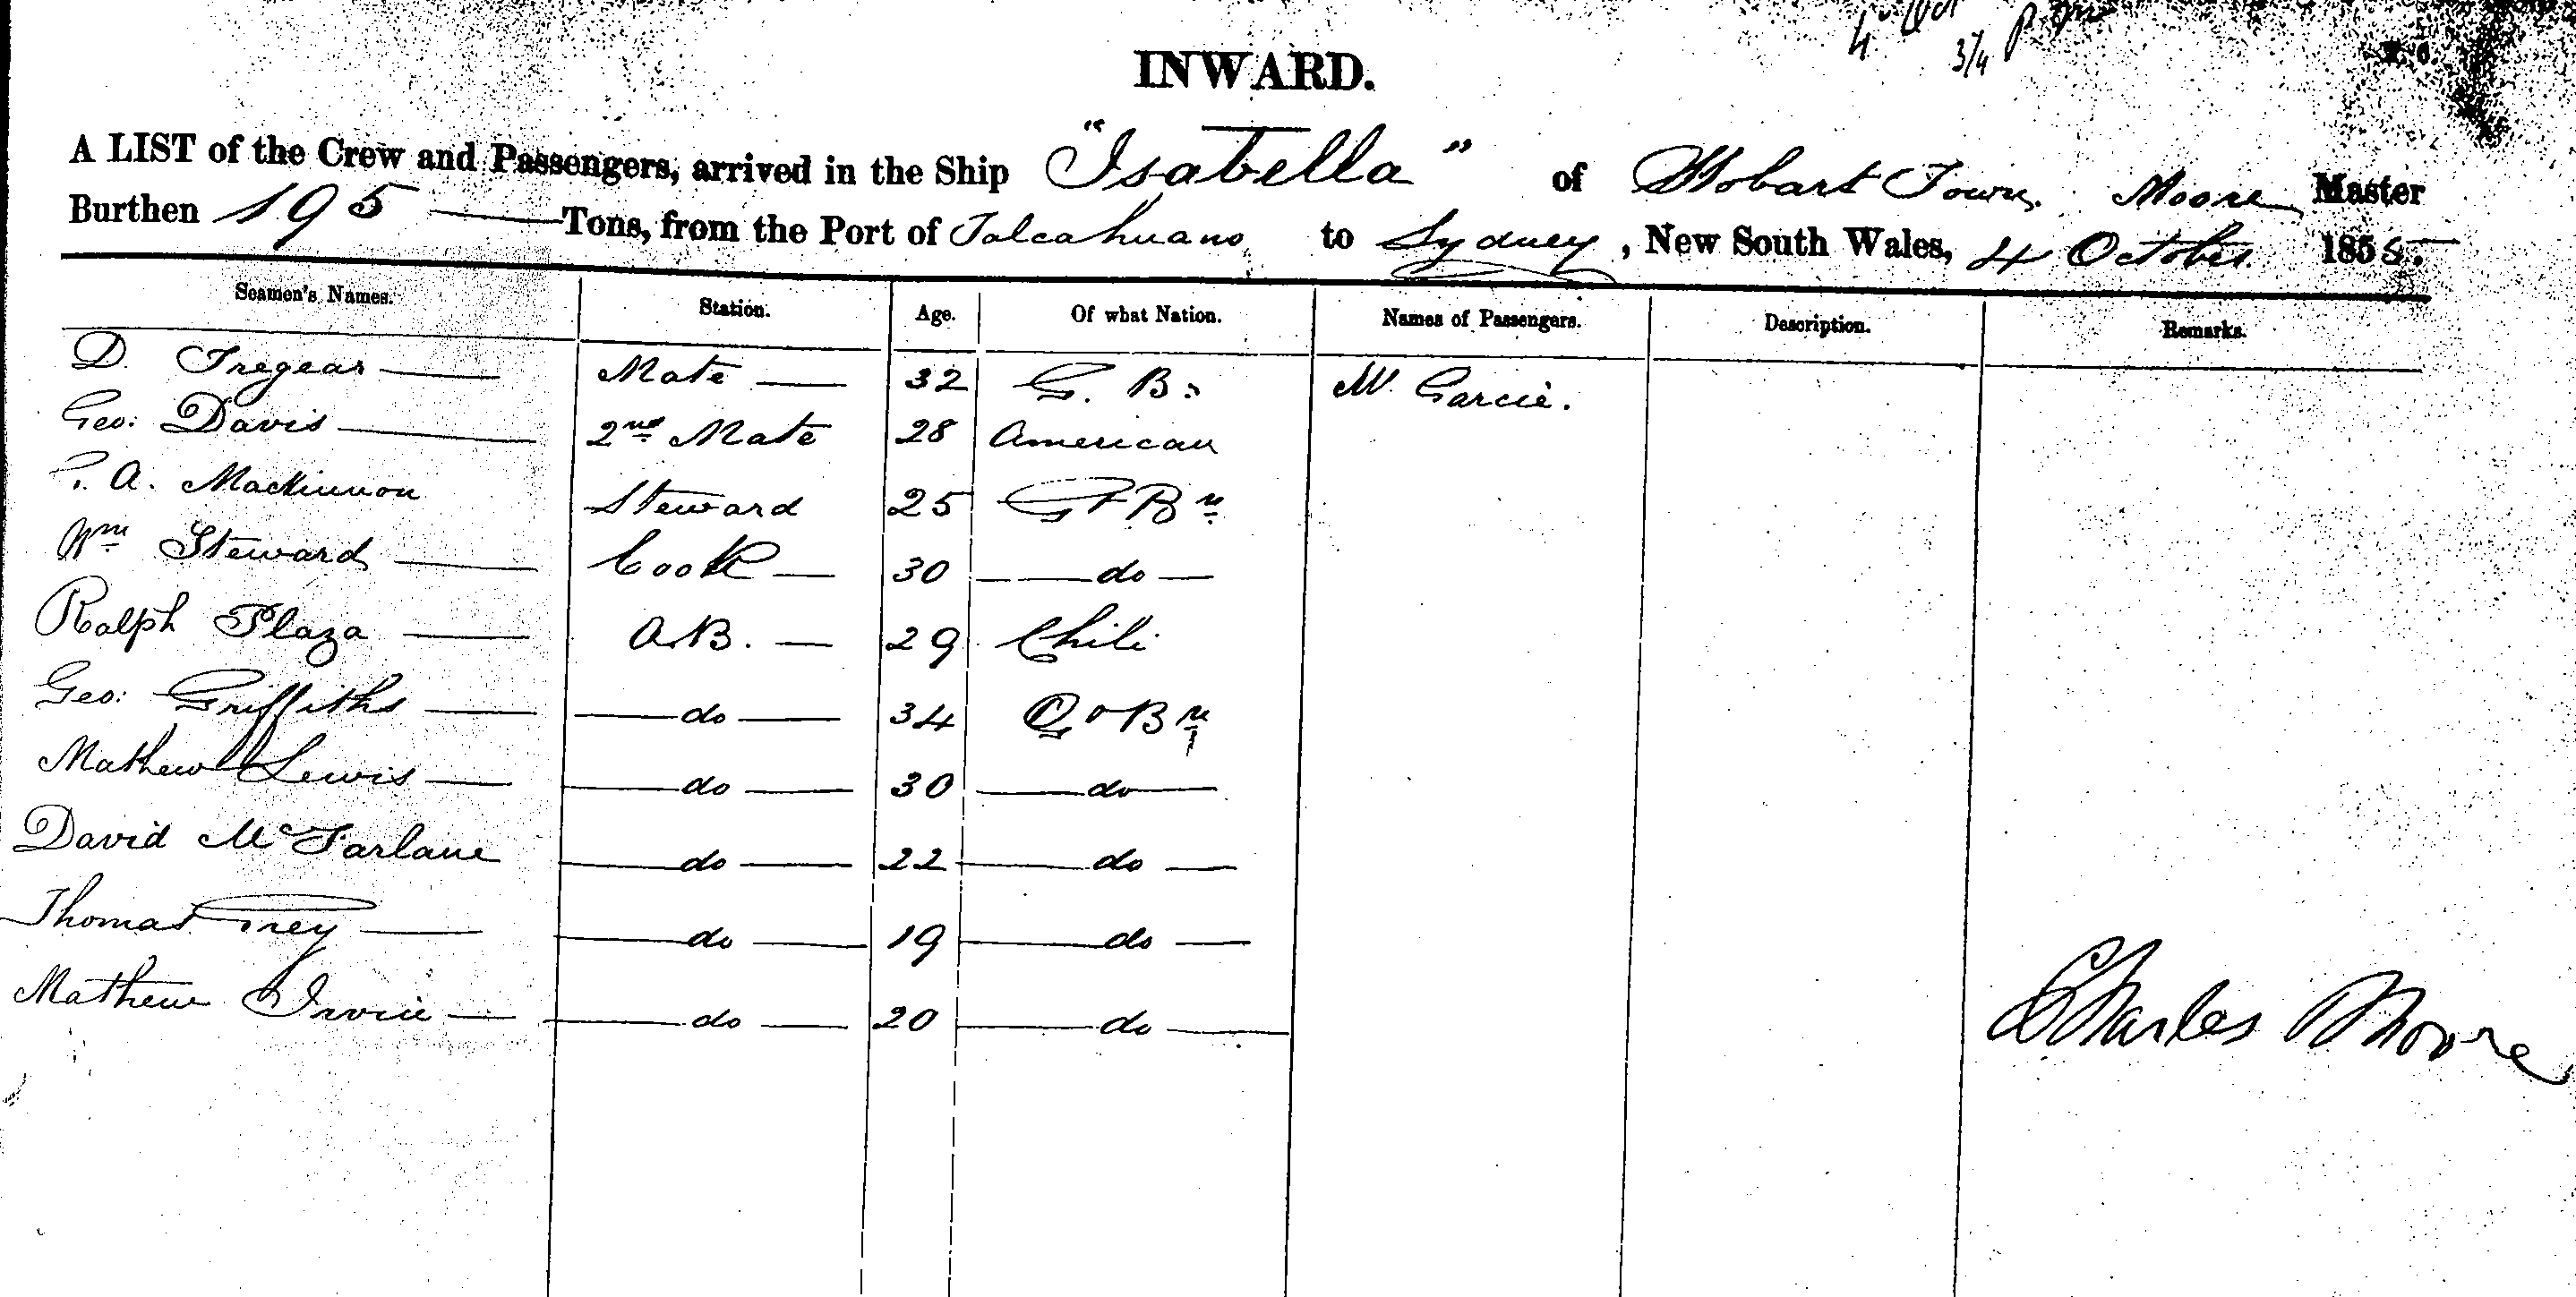 4 Oct
3/4 p m
INWARD.
A LIST of the Crew and Passengers, arrived in the Ship "Isabella" of Hobart Town, Moore Master
Burthen 195 Tons, from the Port of Talcahuano to Sydney, New South Wales, 4 October 1855.
Seamen's Names. Station. Age. Of what Nation. Names of Passengers. Description. Remarks.
D. Tregear Mate 32 G. B. Garcie.
Geo: Davis 2nd Mate 28 American
A. Mackinnon Steward 25 Gt Bn
Wm Steward Cook 30 do
Ralph Plaza A.B. 29 Chili
Geo: Griffiths do 34 Gt Bn
Mathew Lewis do 30 do
David McFarlane do 22 do
Thomas do 19 do
Mathew Irvin do 20 do
Charles Moore